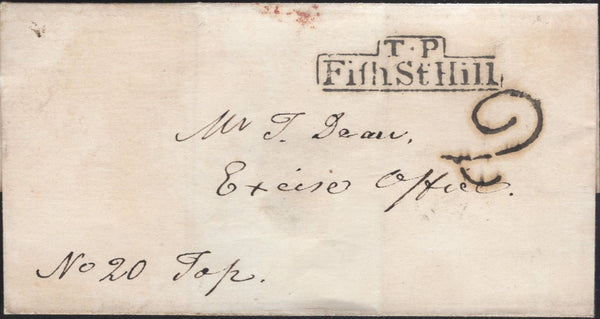 T·P
Fiſh St Hill
2
Mr T. Dean,
Excise Office.
No 20 Top.